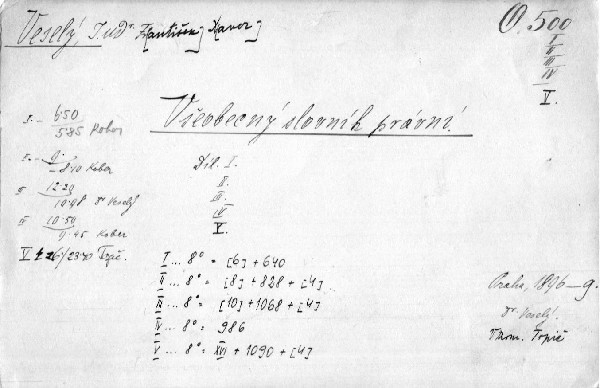 Veselý, Judr. František Xaver
O. 500
I
II
III
IV
V.
Všeobecný slovník právní.
I. - 6·50
5·85 Kober
II. - 9·-
8·10 Kober
III 12·20
10·98 Dr Veselý
IV 10·50
9·45 Kober
V Topič.
Díl. I.
II.
III.
IV
V.
I ... 8° = [6] + 640
II ... 8° = [8] + 828 + [4]
III ... 8° = [10] + 1068 + [4]
IV ... 8° = 986
V ... 8° = XVI + 1090 + [4]
Praha, 1896-9.
Dr. Veselý.
Thom. Topič